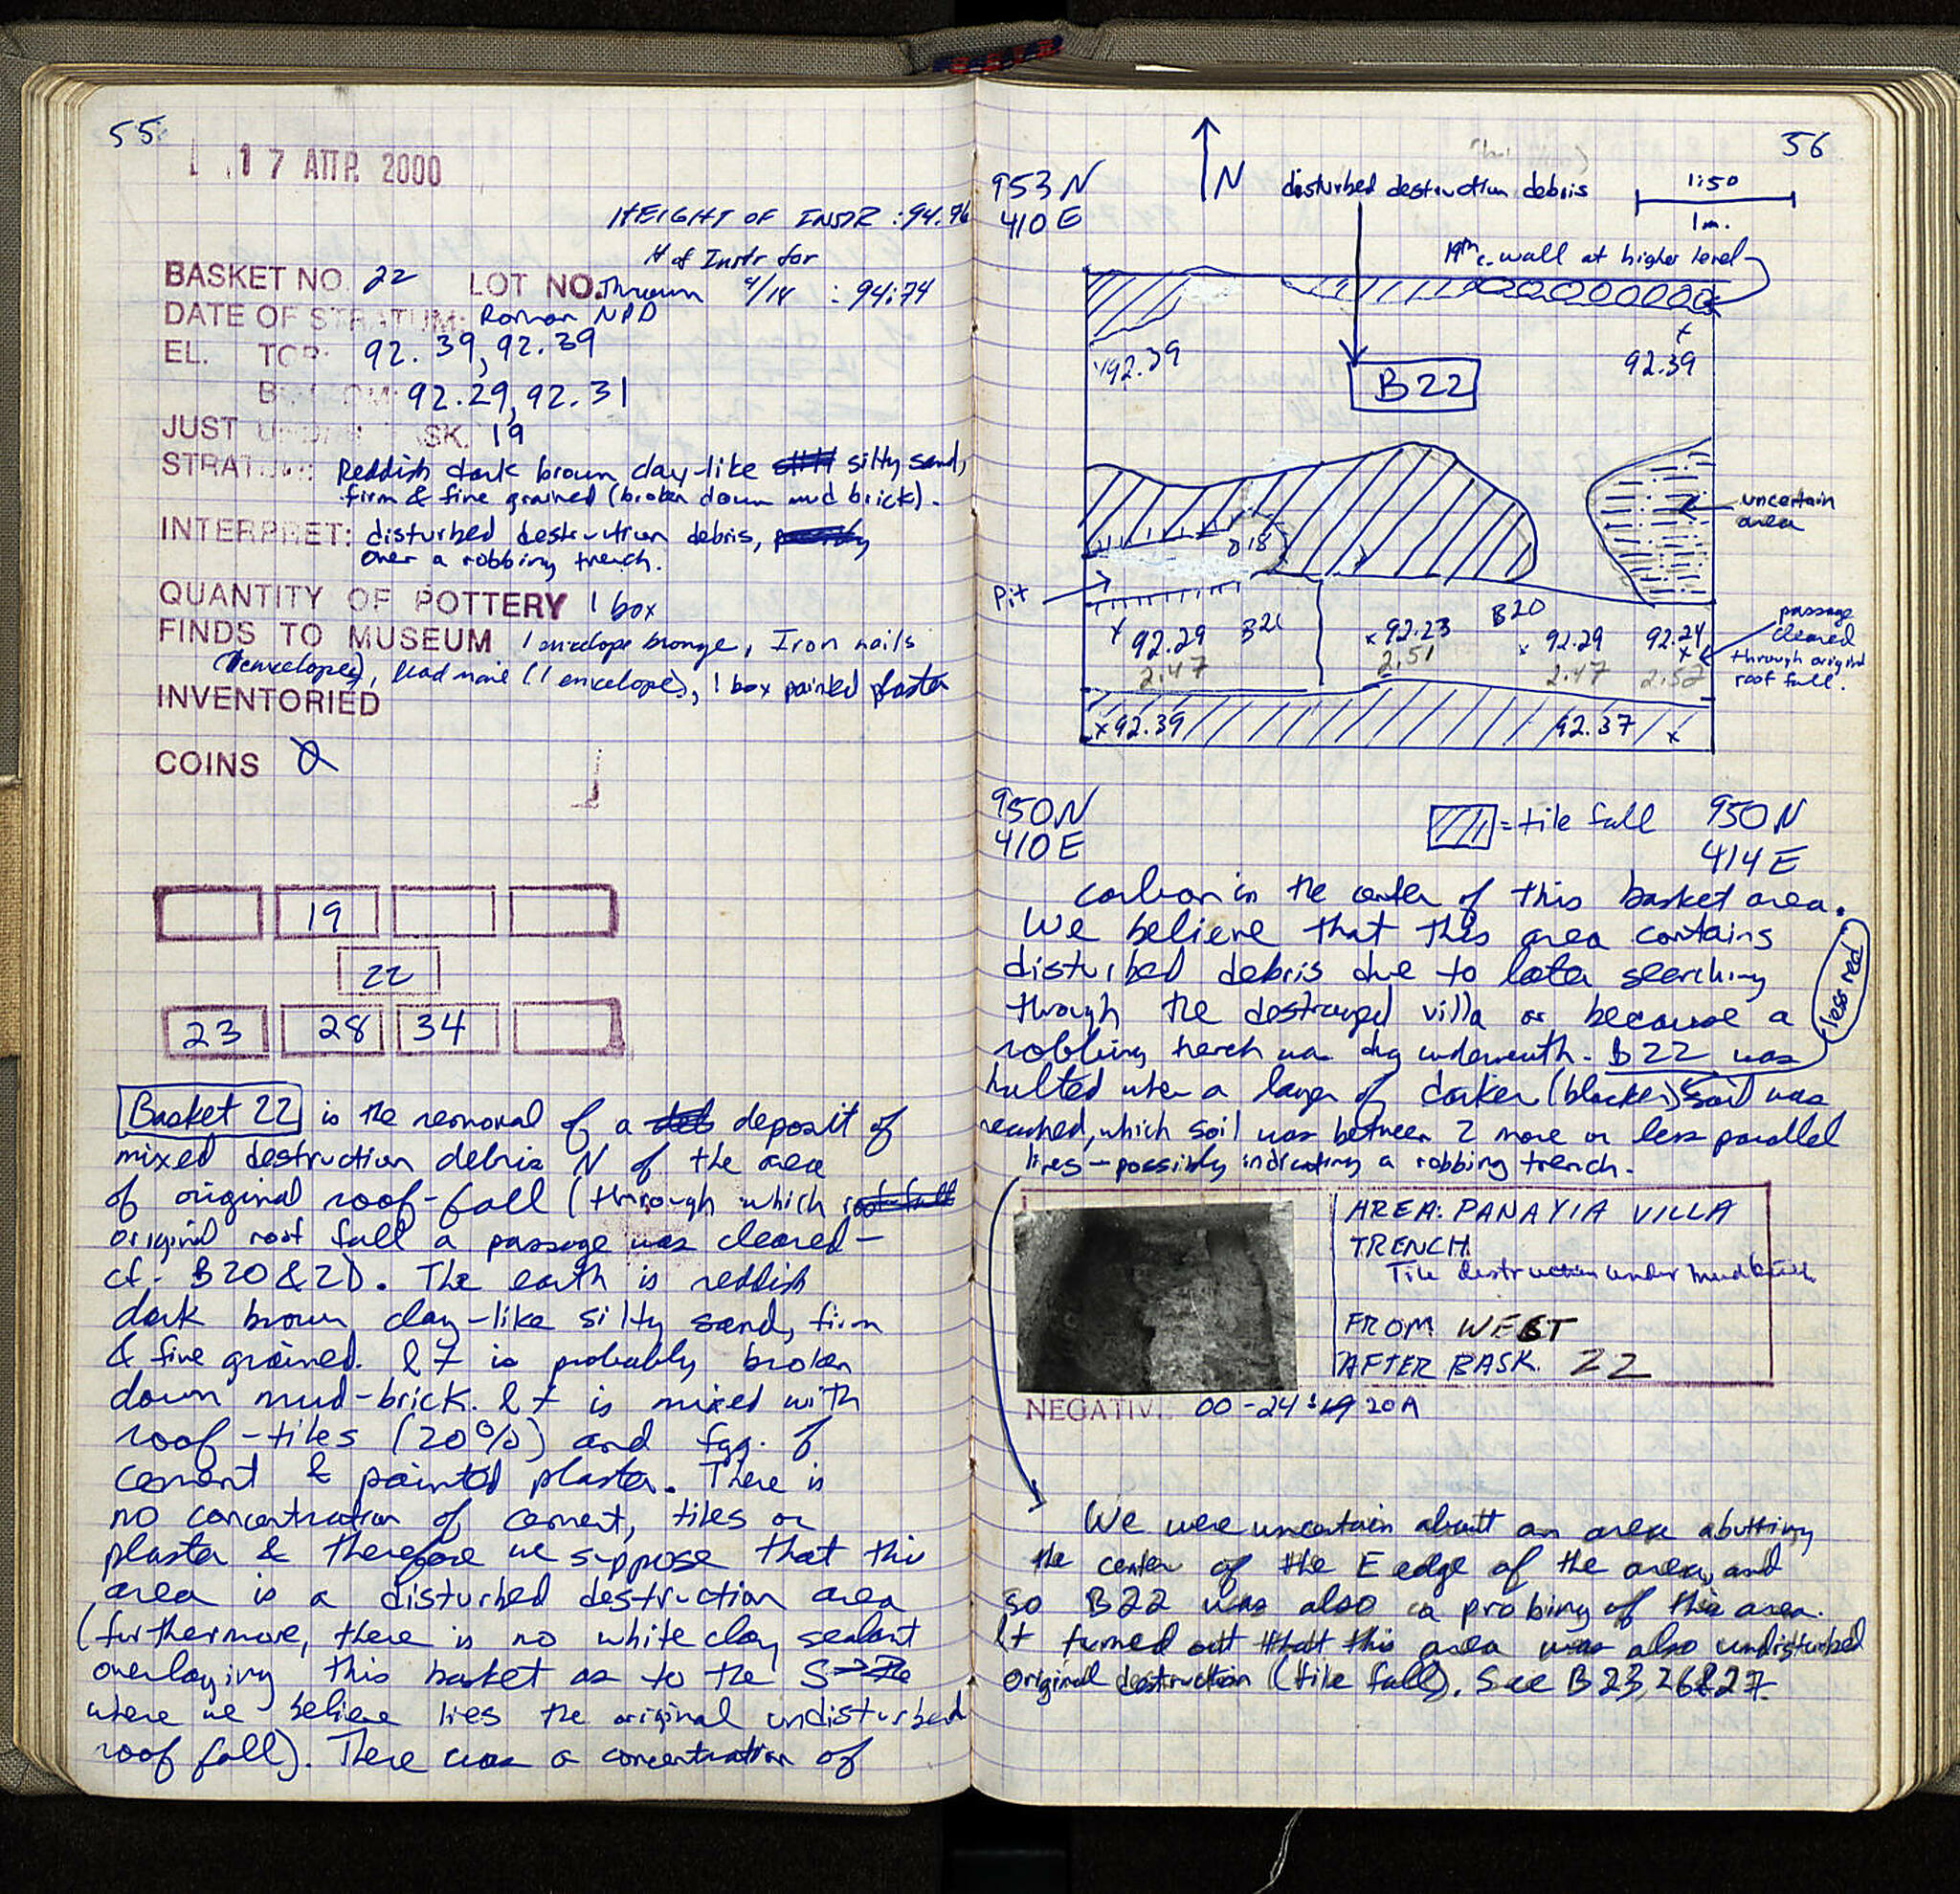 55
17 ΑΠΡ. 2000
HEIGHT OF INSTR : 94.76
H of Instr for
BASKET NO. 22 LOT NO. Thrown 4/18 : 94.74
DATE OF STRATUM: Roman NPD
EL. TOP: 92.39, 92.39
BOTTOM: 92.29, 92.31
JUST UNDER BASK. 19
STRATUM: Reddish dark brown clay-like silty sand,
firm & fine grained (broken down mud brick).
INTERPRET: disturbed destruction debris,
over a robbing trench.
QUANTITY OF POTTERY 1 box
FINDS TO MUSEUM 1 envelope bronze, Iron nails
(1 envelope), lead (1 envelope), 1 box painted plaster
INVENTORIED
COINS 0
19
22
23 28 34
Basket 22 is the removal of a deposit of
mixed destruction debris N of the area
of original roof-fall (through which
original roof fall a passage was cleared –
cf. B20 & 21). The earth is reddish
dark brown clay-like silty sand, firm
& fine grained. It is probably broken
down mud-brick. It is mixed with
roof-tiles (20%) and fgg. of
cement & painted plaster. There is
no concentration of cement, tiles or
plaster & therefore we suppose that this
area is a disturbed destruction area
(furthermore, there is no white clay sealant
overlaying this basket as to the S
where we believe lies the original undisturbed
roof fall). There was a concentration of
56
N
953 N
410 E
disturbed destruction debris
1:50
1 m.
19th c. wall at higher level
92.39
92.39
B22
uncertain area
B18
Pit
92.29 B21
2.47
92.23
2.51
B20
92.29
2.47
92.24
2.52
passage
cleared
through original
roof fall.
92.39
92.37
950 N
410 E
= tile fall
950 N
414 E
carbon in the center of this basket area.
We believe that this area contains
disturbed debris due to later searching
through the destroyed villa or because a
robbing trench was dug underneath. B22 was
halted when a layer of darker (blacker) less red soil was
reached, which soil was between 2 more or less parallel
lines – possibly indicating a robbing trench.
AREA: PANAYIA VILLA
TRENCH
Tile destruction under mudbrick
FROM WEST
AFTER BASK. 22
NEGATIVE: 00-24: 20A
We were uncertain about an area abutting
the center of the E edge of the area, and
so B22 was also a probing of this area.
It turned out that this area was also undisturbed
original destruction (tile fall). See B23, 26 & 27.